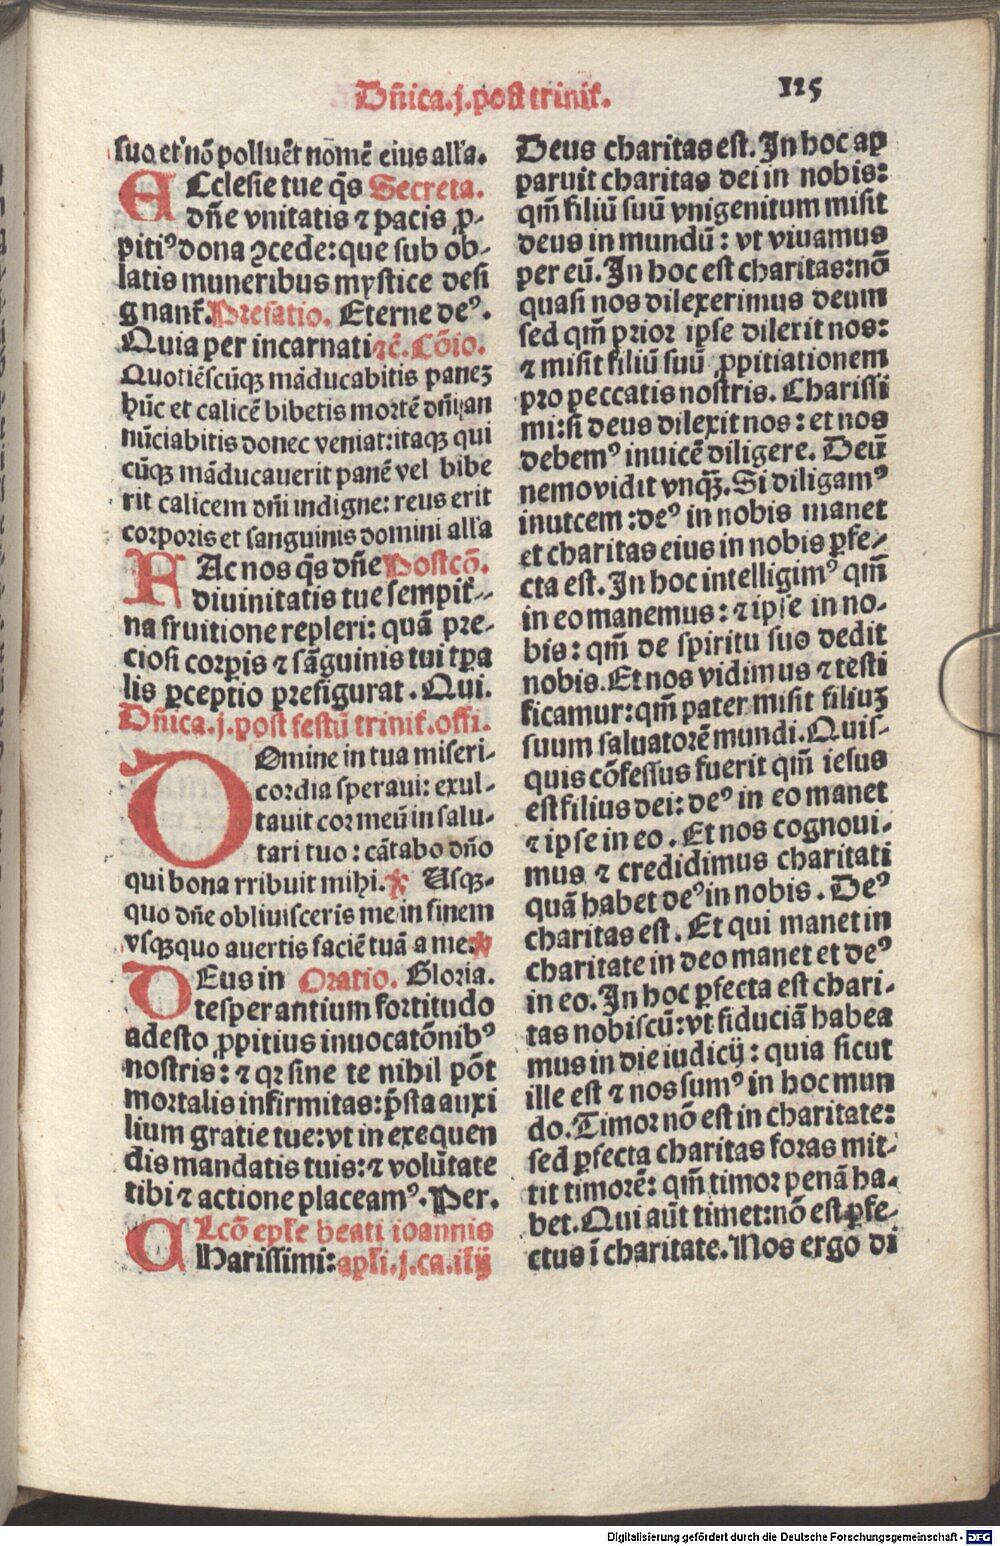 Dñica.j.post trinit̃.
125
suo et nõ polluẽt nomẽ eius alľa.
ECclesie tue q̃s Secreta.
dñe vnitatis ⁊ pacis ꝓ-
pitiꝰ dona ꝯcede: que sub ob-
latis muneribus mystice desi
gnant̃. Prefatio. Eterne deꝰ.
Quia per incarnati ⁊c̃. Cõio.
Quotiẽscũqꝫ mãducabitis paneꝫ
hũc et calicẽ bibetis mortẽ dñi an
nũciabitis donec veniat: itaqꝫ qui
cũqꝫ mãducauerit panẽ vel bibe
rit calicem dñi indigne: reus erit
corporis et sanguinis domini alľa
FAc nos q̃s dñe Postcõ.
diuinitatis tue sempit̃-
na fruitione repleri: quã pre-
ciosi corꝑis ⁊ sãguinis tui tꝑa
lis ꝑceptio prefigurat. Qui.
Dñica.j.post festũ trinit̃.offi.
DOmine in tua miseri-
cordia speraui: exul-
tauit cor meũ in salu-
tari tuo: cãtabo dño
qui bona tribuit mihi. ꝟ Usqꝫ-
quo dñe obliuisceris me in finem
vsqꝫquo auertis faciẽ tuã a me:
DEus in Oratio. Gloria.
te sperantium fortitudo
adesto ꝓpitius inuocatõnibꝰ
nostris: ⁊ qꝛ sine te nihil põt
mortalis infirmitas: p̃sta auxi
lium gratie tue: vt in exequen
dis mandatis tuis: ⁊ volũtate
tibi ⁊ actione placeamꝰ. Per.
Lcõ epľe beati ioannis
CHarissimi: apľi.j.ca.iiij
Deus charitas est. In hoc ap
paruit charitas dei in nobis:
qm̃ filiũ suũ vnigenitum misit
deus in mundũ: vt viuamus
per eũ. In hoc est charitas: nõ
quasi nos dilexerimus deum
sed qm̃ prior ipse dilexit nos:
⁊ misit filiũ suũ ꝓpitiationem
pro peccatis nostris. Charissi
mi: si deus dilexit nos: et nos
debemꝰ inuicẽ diligere. Deũ
nemo vidit vnqꝫ̃. Si diligamꝰ
inuicem: deꝰ in nobis manet
et charitas eius in nobis ꝑfe-
cta est. In hoc intelligimꝰ qm̃
in eo manemus: ⁊ ipse in no-
bis: qm̃ de spiritu suo dedit
nobis. Et nos vidimus ⁊ testi
ficamur: qm̃ pater misit filiuꝫ
suum saluatorẽ mundi. Quis-
quis cõfessus fuerit qm̃ iesus
est filius dei: deꝰ in eo manet
⁊ ipse in eo. Et nos cognoui-
mus ⁊ credidimus charitati
quã habet deꝰ in nobis. Deꝰ
charitas est. Et qui manet in
charitate in deo manet et deꝰ
in eo. In hoc ꝑfecta est chari-
tas nobiscũ: vt fiduciã habea
mus in die iudicij: quia sicut
ille est ⁊ nos sumꝰ in hoc mun
do. Timor nõ est in charitate:
sed ꝑfecta charitas foras mit-
tit timorẽ: qm̃ timor penã ha-
bet. Qui aũt timet: nõ est ꝑfe-
ctus ĩ charitate. Nos ergo di
Digitalisierung gefördert durch die Deutsche Forschungsgemeinschaft - DFG